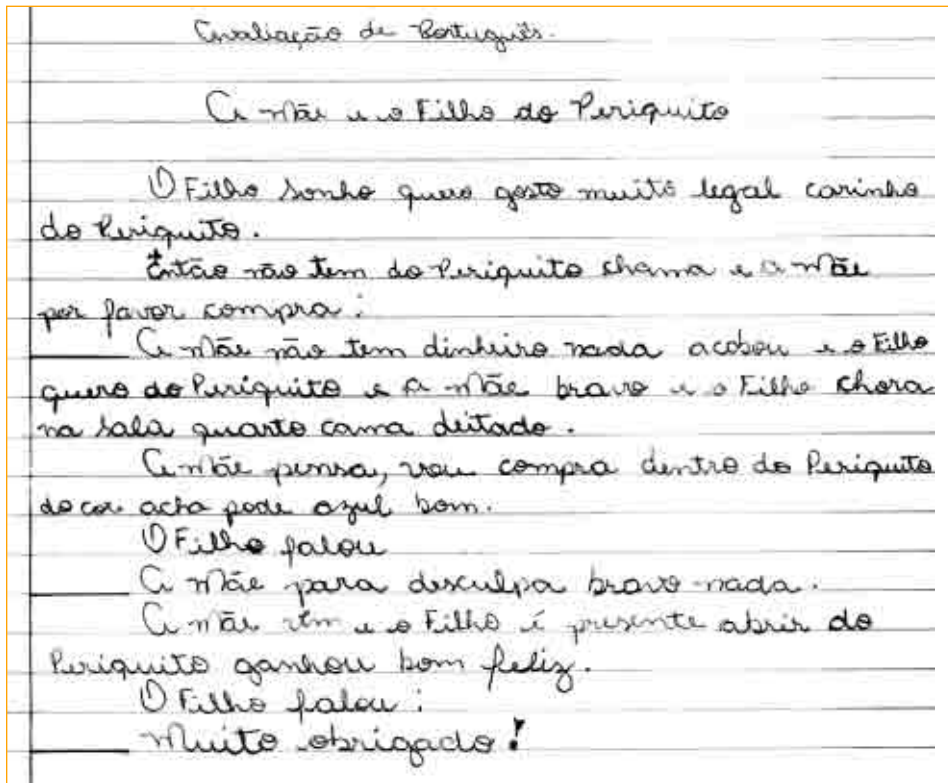 Avaliação de Português.
A mãe e o Filho do Periquito
O Filho sonho quero gosto muito legal carinho
do Periquito.
Então não tem do Periquito chama e a mãe
por favor compra:
A mãe não tem dinheiro nada acobou e o Filho
quero do Periquito e a mãe bravo e o Filho chora
na sala quarto cama deitado.
A mãe pensa, vou compra dentro do Periquito
do cor acha pode azul bom.
O Filho falou
A mãe para desculpa bravo nada.
A mãe vem e o Filho é presente abrir do
Periquito ganhou bom feliz.
O Filho falou:
Muito obrigado!